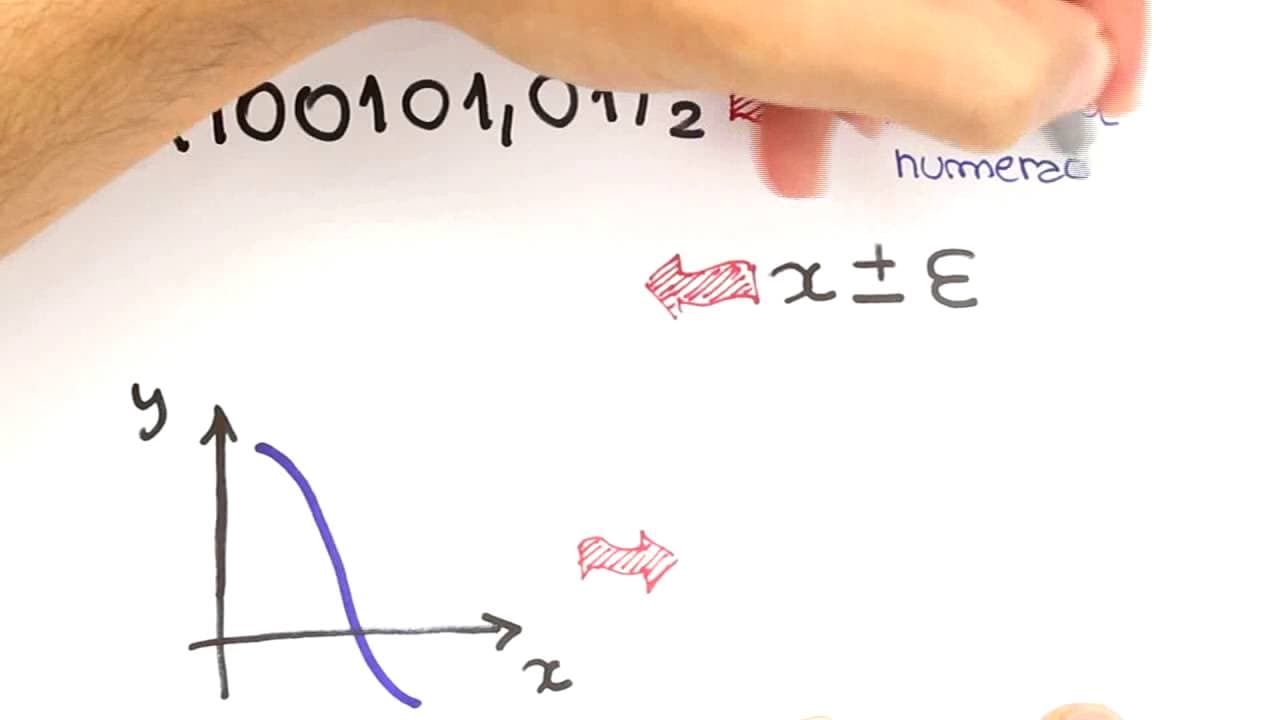 100101,011₂
numerac
x ± ε
y
x